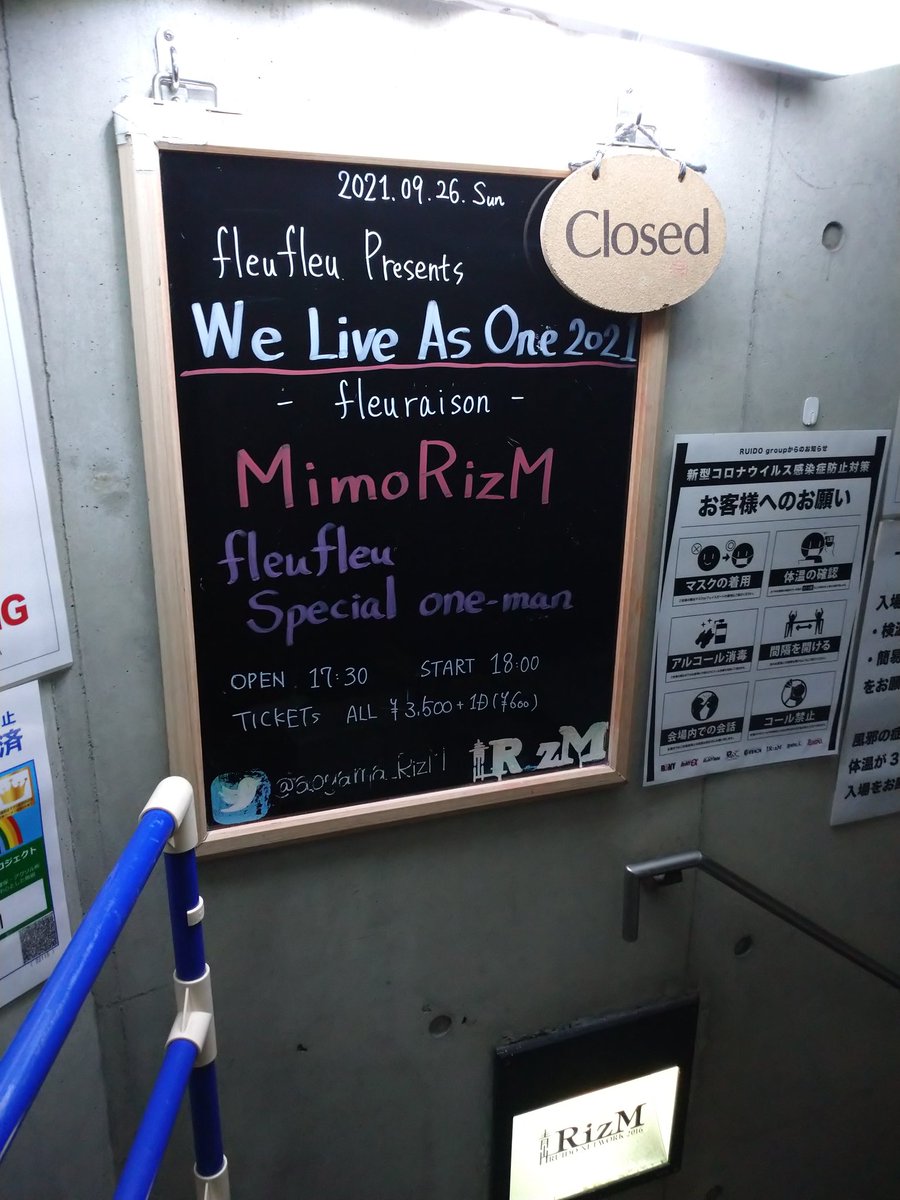 2021.09.26.Sun
fleufleu Presents
We Live As One 2021
- fleuraison -
MimoRizM
fleufleu
Special one-man
OPEN 17:30 START 18:00
TICKETS ALL ¥3,500+1D(¥600)
@aoyama_RizM
RizM
Closed
RUIDO groupからのお知らせ
新型コロナウイルス感染症防止対策
お客様へのお願い
マスクの着用
体温の確認
アルコール消毒
間隔を開ける
会場内での会話
コール禁止
入場
・検温
・簡易
をお願
風邪の症
体温が3
入場をお
NG
止
済
ロジェクト
RizM
RUIDO NETWORK 2016